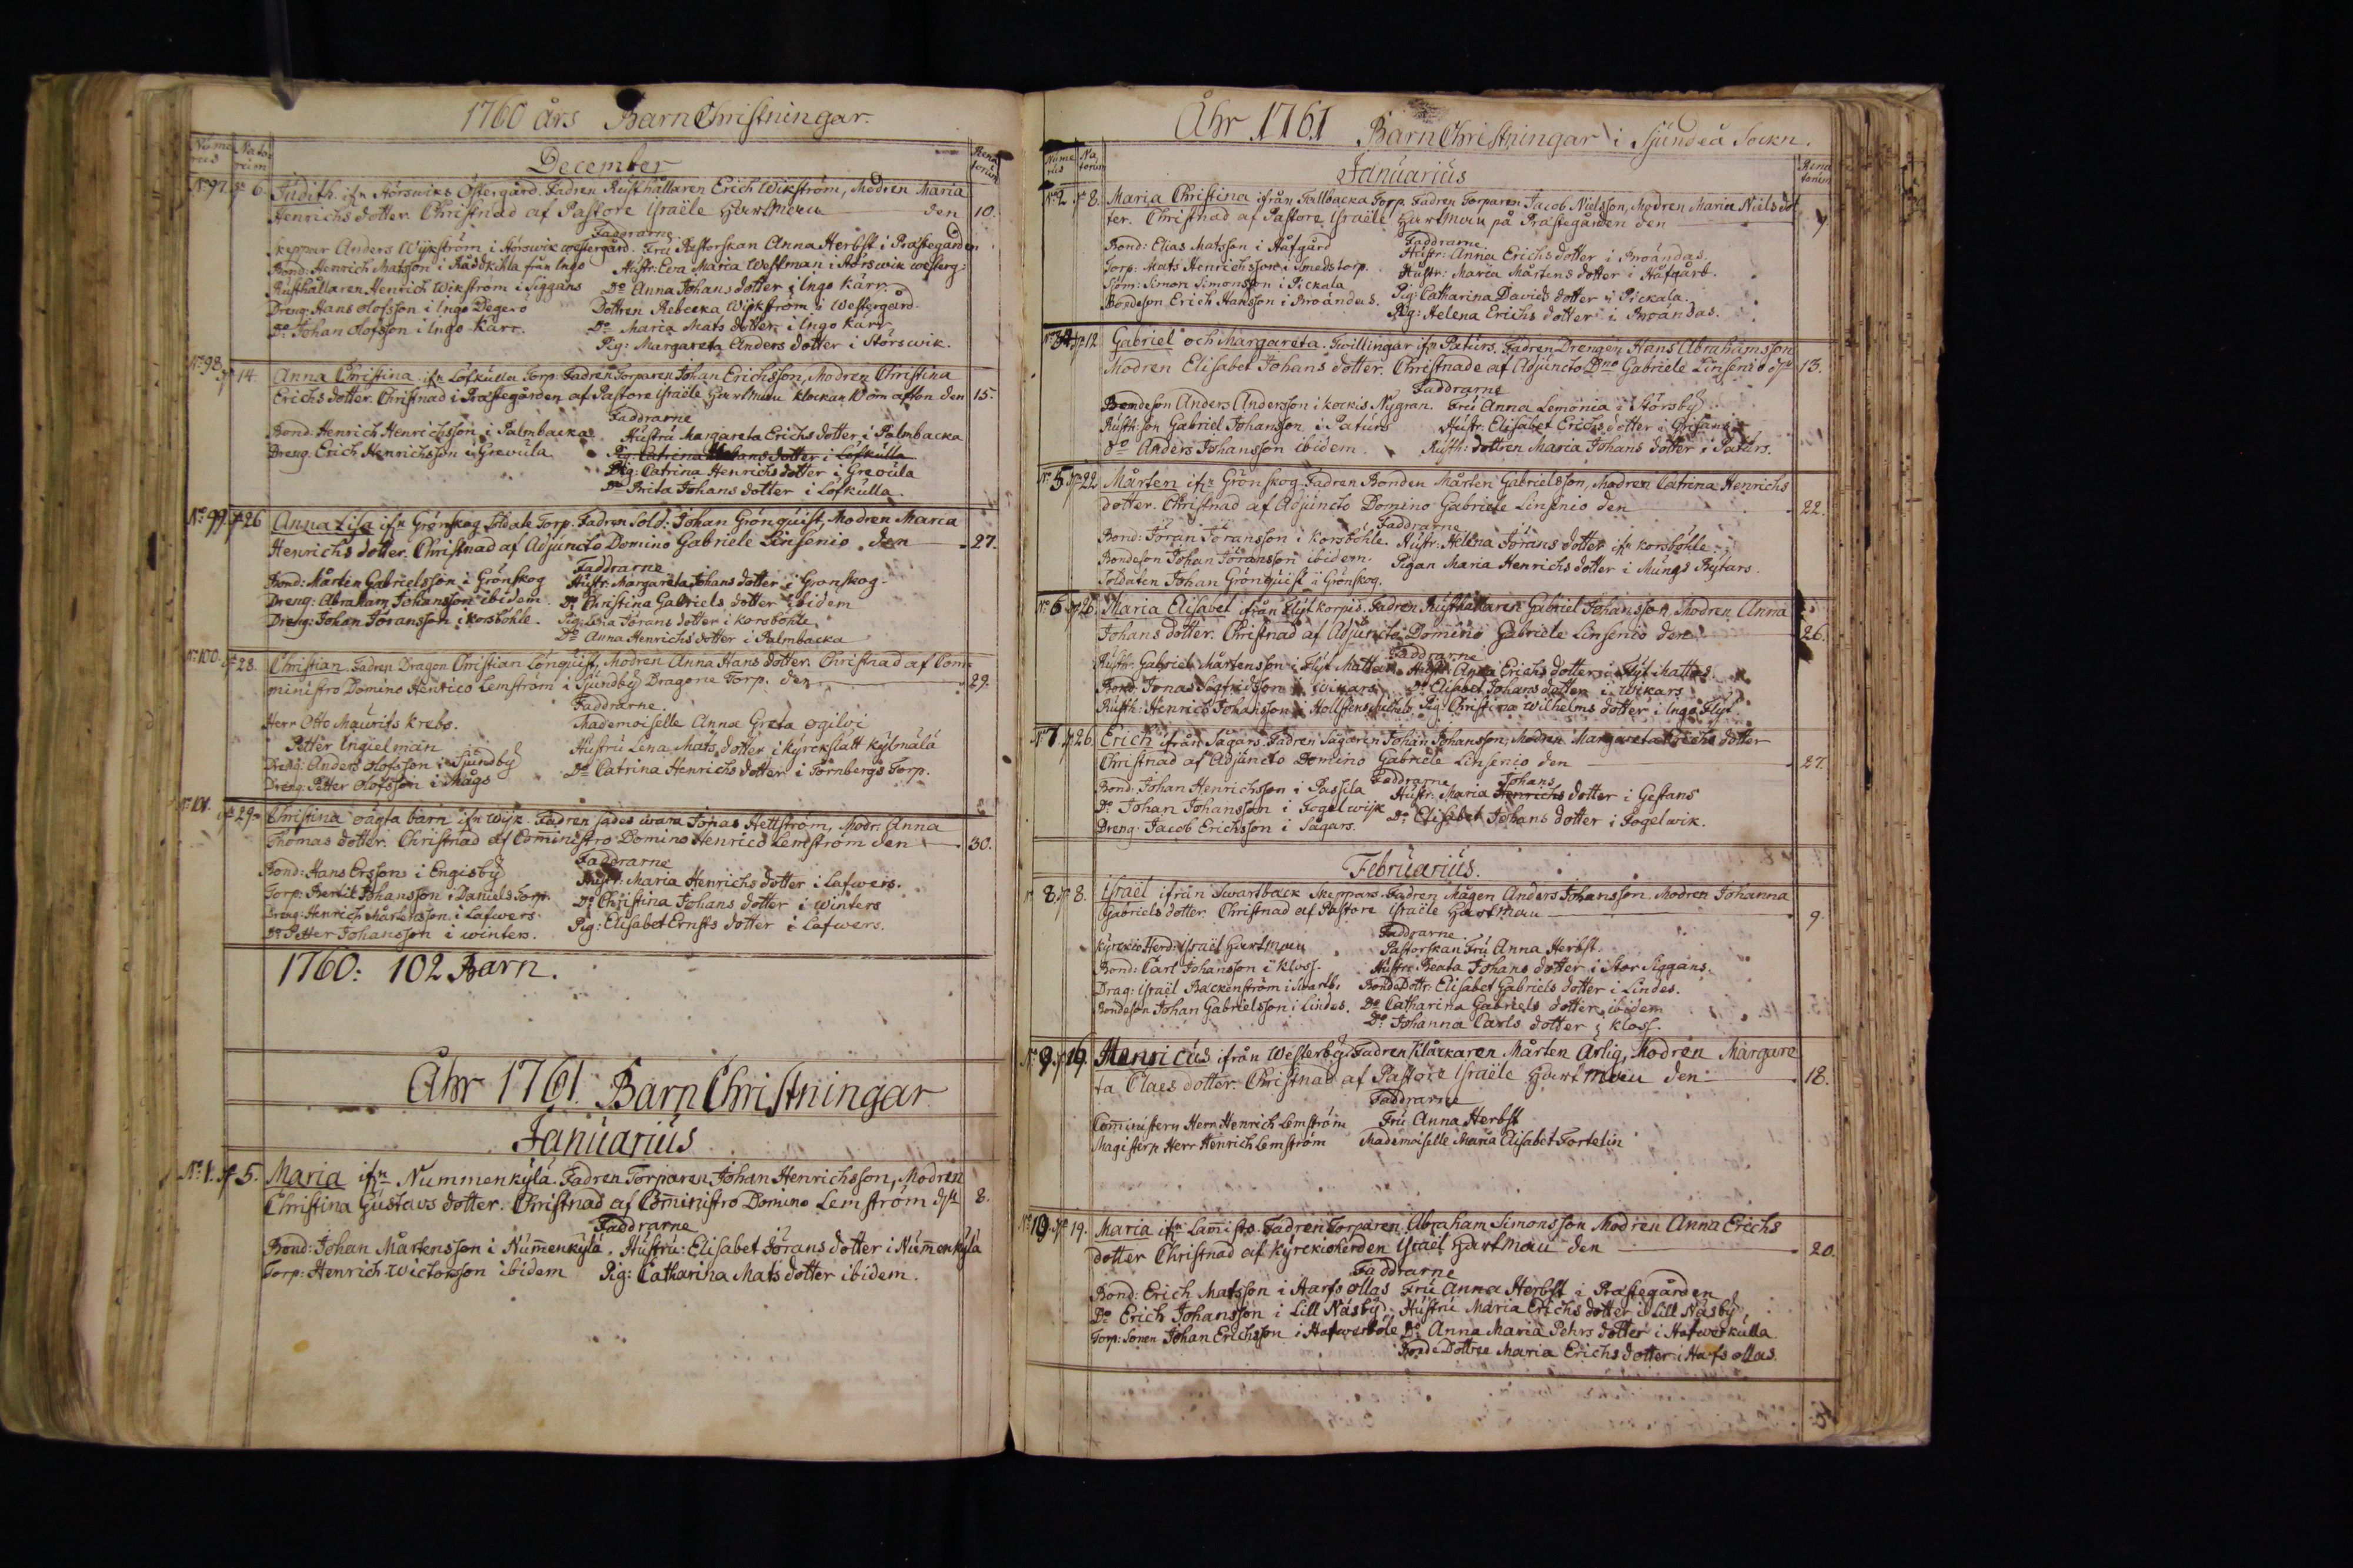 1760 års Barn Christningar.
Nume rus Nato rum December Rena torum
No 97. d 6. Judith. ifn Störswiks Östergård. Fadren Rusthållaren Erich Wikström, Modren Maria
Henrichs dotter. Christnad af Pastore Israële Hartman den 10.
Faddrarne
Skeppar Anders Wijkström i Störswik westergård. Fru Pastorskan Anna Herbst i Prästegården
Bond: Henrich Matsson i Rådkihla från Ingo Hustr: Eva Maria Westman i Störswik westerg:
Rusthållaren Henrich Wikström i Siggans Do Anna Johans dotter i Ingo Kärr.
Dreng: Hans Olofsson i Ingo Degerö Dottren Rebecka Wikström i Westergård.
Do Johan Olofsson i Ingo Kärr. Do Maria Mats dotter i Ingo Kärr.
Pig: Margareta Anders dotter i Störswik.
No 98. d 14. Anna Christina ifn Löfkulla Torp. Fadren Torparen Johan Erichsson, Modren Christina
Erichs dotter. Christnad i Prästegården af Pastore Israële Hartman klockan 10 om afton den 15.
Faddrarne
Bond: Henrich Henrichsson i Palmbacka Hustru Margareta Erichs dotter i Palmbacka
Dreng: Erich Henrichsson i Grevula. Pig: Catrina Johans dotter i Löfkulla
Pig: Catrina Henrichs dotter i Grevula
Do Brita Johans dotter i Löfkulla.
No 99. d 26 Anna Lisa ifn Grönskog Soldate Torp. Fadren Sold: Johan Grönquist, Modren Maria
Henrichs dotter. Christnad af Adjuncto Domino Gabriele Linsenio den 27.
Faddrarne
Bond: Mårten Gabrielsson i Grönskog Hustr: Margareta Johans dotter i Grönskog.
Dreng: Abraham Johansson ibidem. Do Christina Gabriels dotter ibidem
Dreng: Johan Jöransson i korsböhle. Pig: Lisa Jörans dotter i korsböhle
Do Anna Henrichs dotter i Palmbacka
No 100. d 28. Christian. Fadren Dragon Christian Lönquist, Modren Anna Hans dotter. Christnad af Com
ministro Domino Henrico Lemström i Sjundby Dragone Torp. den 29.
Faddrarne
Herr Otto Maurits Krebs. Mademoiselle Anna Greta Ogilvi
Petter Ingielman Hustru Lena Mats dotter i kyrckslätt kylmälä
Dreng: Anders Olofsson i Sjundby Do Catrina Henrichs dotter i Törnbergs Torp.
Dreng: Petter Olofsson i Mugs
No 101. d 29. Christina oägta barn ifn Wijk. Fadren sades wara Jonas Hettström, Modr: Anna
Thomas dotter. Christnad af Comministro Domino Henrico Lemström den 30.
Faddrarne
Bond: Hans Ersson i Engisby Hustr: Maria Henrichs dotter i Lafwers.
Torp: Johansson i Daniels Torp. Do Christina Johans dotter i Winters
Dreng: Henrich Mårtensson i Lafwers. Pig: Elisabet Ernsts dotter i Lafwers.
Do Petter Johansson i winters.
1760: 102 Barn.
Åhr 1761. Barn Christningar
Januarius
No 1. d 5. Maria ifn Nummenkylä. Fadren Torparen Johan Henrichsson, Modren
Christina Gustavs dotter. Christnad af Comministro Domino Lemström dn 8.
Faddrarne
Bond: Johan Mårtensson i Num̅enkylä. Hustru: Elisabet Jörans dotter i Num̅enkylä
Torp: Henrich Wictorsson ibidem Pig: Catharina Mats dotter ibidem.
Åhr 1761 Barn Christningar i Sjundeå Sockn.
Nume rus Na torum Januarius Rena torum
No 2. d 8. Maria Christina ifrån Tallbacka Torp. Fadren Torparen Jacob Nielsson, Modren Maria Niels dot
ter. Christnad af Pastore Israële Hartman på Prästegården den 9
Faddrarne
Bond: Elias Matsson i Håfgård Hustr: Anna Erichs dotter i Broändas.
Torp: Mats Henrichsson i Smedstorp. Hustr: Maria Mårtens dotter i Håfgård.
Sjöm: Simon Simonsson i Pickala Pig: Catharina Davids dotter i Pickala.
Bondeson Erich Hansson i Broändas. Pig: Helena Erichs dotter i Broändas.
No 34 d 12 Gabriel och Margareta. Twillingar ifn Paturs. Fadren Drengen Hans Abrahamsson
Modren Elisabet Johans dotter. Christnade af Adjuncto Dno Gabriele Linsenio dn 13.
Faddrarne
Bondeson Anders Andersson i kockis. Nygran. Fru Anna Lemonia i Störsby
Rusth: son Gabriel Johansson i Paturs Hustr: Elisabet Erichs dotter i Grifans
Do Anders Johansson ibidem. Rusth: dottren Maria Johans dotter i Paturs.
No 5. d 22 Mårten ifn Grönskog. Fadren Bonden Mårten Gabrielsson, Modren Catrina Henrichs
dotter. Christnad af Adjuncto Domino Gabriele Linsenio den 22.
Faddrarne
Bond: Jöran Jöransson i Korsböhle. Hustr: Helena Jörans dotter ifn korsböhle
Bondeson Johan Jöransson ibidem. Pigan Maria Henrichs dotter i Mungs Rytars.
Soldaten Johan Grönquist i Grönskog.
No 6. d 26. Maria Elisabet ifrån Flyt korpis. Fadren Rusthållaren Gabriel Johansson, Modren Anna
Johans dotter. Christnad af Adjuncto Domino Gabriele Linsenio den 26.
Faddrarne
Rusth: Gabriel Mårtensson i Flyt Mattas Hustr: Anna Erichs dotter i Flyt Mattas.
Bond: Jonas Sigfridsson i Wikars. Do Elisabet Johans dotter i Wikars
Rusth: Henrich Johansson i Pig: Christina Wilhelms dotter i Ingo Flyt.
No 7. d 26. Erich ifrån Sågars. Fadren Sågaren Johan Johansson, Modren Margareta Erichs dotter
Christnad af Adjuncto Domino Gabriele Linsenio den 27.
Faddrarne Johans
Bond: Johan Henrichsson i Passila Hustr: Maria Henrichs dotter i Gestans
Do Johan Johansson i Fogelwijk Do Elisabet Johans dotter i Fogelwik.
Dreng: Jacob Erichsson i Sågars.
Februarius.
No 8. d 8. Israël ifrån Swartback Skeppars. Fadren Mågen Anders Johansson Modren Johanna
Gabriels dotter. Christnad af Pastore Israële Hartman 9.
Faddrarne.
Kyrckio Herd: Israël Hartman Pastorskan Fru Anna Herbst.
Bond: Carl Johansson i Kloss. Hustru Beata Johans dotter i Stor Siggans.
Drag: Israël Backenström i Swartb. BondeDottr: Elisabet Gabriels dotter i Lindes.
Bondeson Johan Gabrielsson i Lindes. Do Catharina Gabriels dotter ibidem
Do Johanna Carls dotter i Kloss.
No 9. d 16. Henricus ifrån Westerby. Fadren Klåckaren Mårten Ärlig, Modren Margare
ta Claes dotter. Christnad af Pastore Israële Hartman den 18.
Faddrarne
Com̅inistern Herr Henrich Lemström Fru Anna Herbst
Magistern Herr Henrich Lemström Mademoiselle Maria Elisabet Fortelin
No 10. d 19. Maria ifn Lam̅isto. Fadren Torparen Abraham Simonsson Modren Anna Erichs
dotter Christnad af Kyrckioherden Israël Hartman den 20.
Faddrarne
Bond: Erich Matsson i Harfs ollas Fru Anna Herbst i Prästegården
Do Erich Johansson i Lill Näsby. Hustru Maria Erichs dotter i Lill Näsby.
Torp: Sonen Johan Erichsson i Hafwerböle Do Anna Maria Pehrs dotter i Hafwerkulla
BondeDottren Maria Erichs dotter i Hafs ollas.